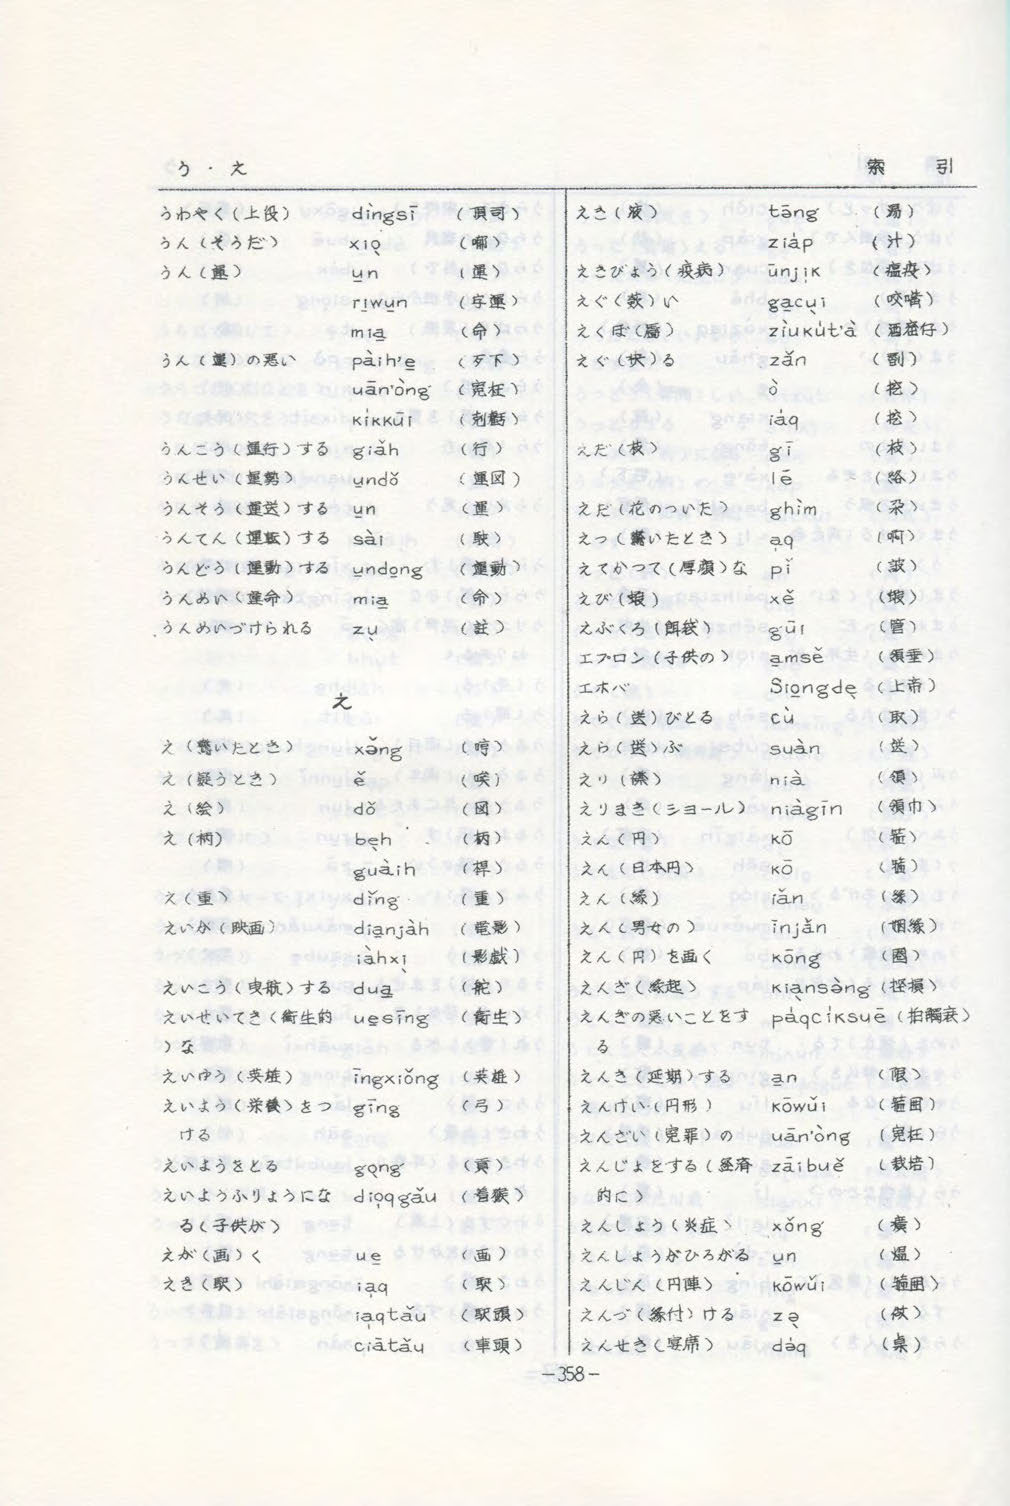 う・え
索 引
うわやく(上役) dìngsī (頂司)
うん(そうだ) xiọ̀ (唧)
うん(運) u̠n (運)
ri̠wu̠n (字運)
mia̠ (命)
うん(運)の悪い pàih'e̠ (歹下)
uān'òng (冤枉)
kı̍kkūi (剋虧)
うんこう(運行)する giǎh (行)
うんせい(運勢) u̠ndǒ (運図)
うんそう(運送)する u̠n (運)
うんてん(運転)する sài (駛)
うんどう(運動)する u̠ndo̠ng (運動)
うんめい(運命) mia̠ (命)
うんめいづけられる zụ̀ (註)
え
え(驚いたとき) xǎng (哼)
え(疑うとき) ě (唉)
え(絵) dǒ (図)
え(柄) be̠h (柄)
guàih (桿)
え(重) dǐng (重)
えいが(映画) dia̠njàh (電影)
iàhxị̀ (影戯)
えいこう(曳航)する dua̠ (舵)
えいせいてき(衛生的 ue̠sīng (衛生)
)な
えいゆう(英雄) īngxiǒng (英雄)
えいよう(栄養)をつ gīng (弓)
ける
えいようをとる gọ̀ng (貢)
えいようふりょうにな diọqgǎu (着猴)
る(子供が)
えが(画)く ue̠ (画)
えき(駅) ia̠q (駅)
ia̠qtǎu (駅頭)
ciātǎu (車頭)
えき(液) tāng (湯)
ziáp (汁)
えきびょう(疫病) ūnji̠k (瘟疫)
えぐ(蘞)い ga̠cụ̀i (咬嘴)
えくぼ(靨) zìukút'à (酒窟仔)
えぐ(抉)る zǎn (剳)
ò (挖)
iáq (挖)
えだ(枝) gī (枝)
lē (絡)
えだ(花のついた) ghìm (朶)
えっ(驚いたとき) a̠q (啊)
えてかつて(厚顔)な pǐ (詖)
えび(蝦) xě (蝦)
えぶくろ(餌袋) gūi (管)
エプロン(子供の) a̠msě (頷垂)
エホバ Sio̠ngdẹ̀ (上帝)
えら(送)びとる cù (取)
えら(送)ぶ suàn (送)
えり(襟) nià (領)
えりまき(ショール) niàgīn (領巾)
えん(円) kō (箍)
えん(日本円) kō (箍)
えん(縁) iǎn (縁)
えん(男女の) īnjǎn (姻縁)
えん(円)を画く kōng (圏)
えんぎ(縁起) kiạ̀nsàng (𢱤損)
えんぎの悪いことをす páqcı̍ksuē (拍觸衰)
る
えんき(延期)する a̠n (限)
えんけい(円形) kōwǔi (箍囲)
えんざい(冤罪)の uān'òng (冤枉)
えんじょをする(経済 zāibuě (栽培)
的に)
えんしょう(炎症) xǒng (癀)
えんしょうがひろがる u̠n (熅)
えんじん(円陣) kōwǔi (箍囲)
えんづ(縁付)ける zə̠
えんせき(宴席) dóq (桌)
-358-